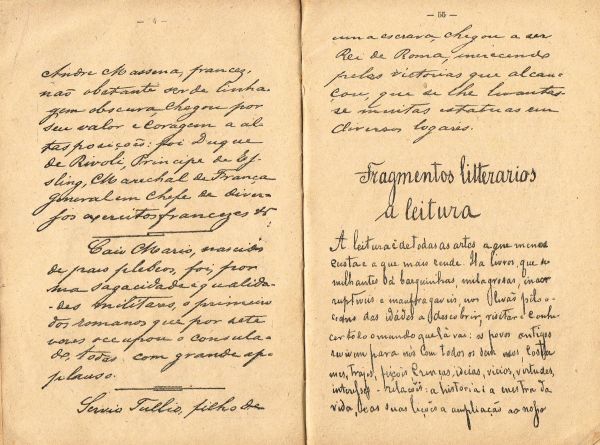 — 4 —
Andre Massena, francez,
não obstante ser de linha-
gem obscura, chegou por
seu valor e coragem a al-
tas posições: foi Duque
de Rivoli, Principe de Es-
sling, Marechal de França
general em Chefe de diver-
sos exercitos francezes &
Caio Mario, nascido
de paes plebeos, foi, por
sua sagacidade e qualida-
des militares, o primeiro
dos romanos que por sete
vezes occupou o consula-
do, todas com grande ap-
plauso.
Servio Tullio, filho de
— 55 —
uma escrava, chegou a ser
Rei de Roma, merecendo
pelas victorias que alcan-
çou, que se lhe levantas-
se muitas estatuas em
diversos logares.
Fragmentos litterarios
a leitura
A leitura é de todas as artes a que menos
custa e a que mais rende. Ha livros, que se-
milhantes ás barquinhas, milagrosas, incor
ruptiveis e inaufragaveis, nos levão pelo o-
ceano das idades a descobrir, visitar e conhe-
cer todo o mundo que lá vai: os povos antigos
revivem para nós com todos os seus usos costu
mes, trajes, feições crenças, ideias, vicios, virtudes,
interesses - relações: a historia é a mestra da
vida, e as suas lições a ampliação ao nosso